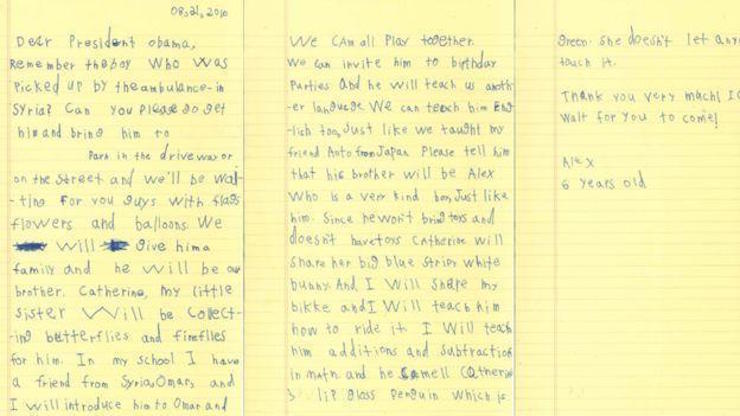 08,21,2010
Dear President obama,
Remember the boy who was
picked up by the ambulance in
Syria? Can you please go get
him and bring him to
Park in the driveway or
on the street and we'll be wai-
ting for you guys with flags
flowers and balloons. We
will give him a
family and he will be our
brother. Catherine, my little
sister will be collect-
ing butterflies and fireflies
for him. In my school I have
a friend from Syria, Omar, and
I will introduce him to Omar and
We can all play together.
We can invite him to birthday
parties and he will teach us anoth-
er language. We can teach him Eng-
lish too, Just like we taught my
friend Aoto from Japan. Please tell him
that his brother will be Alex
who is a very kind boy, Just like
him. Since he won't bring toys and
doesn't have toys Catherine will
share her big blue stripy white
bunny. And I will share my
bikke and I will teach him
how to ride it. I will teach
him additions and subtractions
in math. and he smell Catherine
's lip gloss penguin which is
green. She doesn't let any
touch it.
Thank you very much! I
wait for you to come!
Alex
6 years old